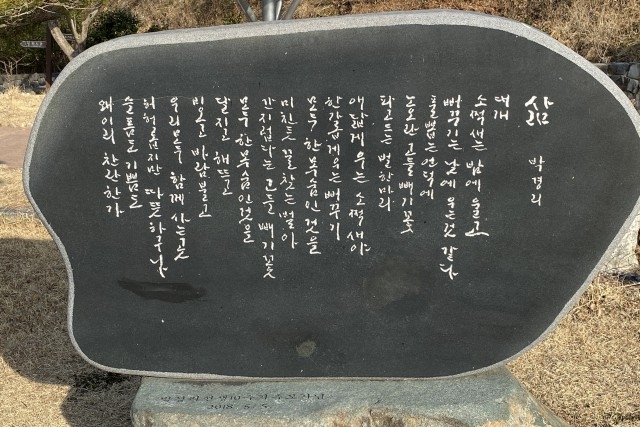 삶
박경리
대개
소쩍새는 밤에 울고
뻐꾸기는 낮에 우는것 같다
풀 뽑는 언덕에
노오란 고들빼기꽃
파고드는 벌 한마리
애닯게 우는 소쩍새야
한가롭게 우는 뻐꾸기
모두 한 목숨인 것을
미친듯 꿀 찾는 벌아
간지럽다는 고들빼기꽃
모두 한 목숨인 것을
달 지고 해 뜨고
비 오고 바람 불고
우리 모두 함께 사는곳
허허롭지만 따뜻하구나
슬픔도 기쁨도
왜 이리 찬란한가
박경리선생10주기추모기념
2018. 5. 5.